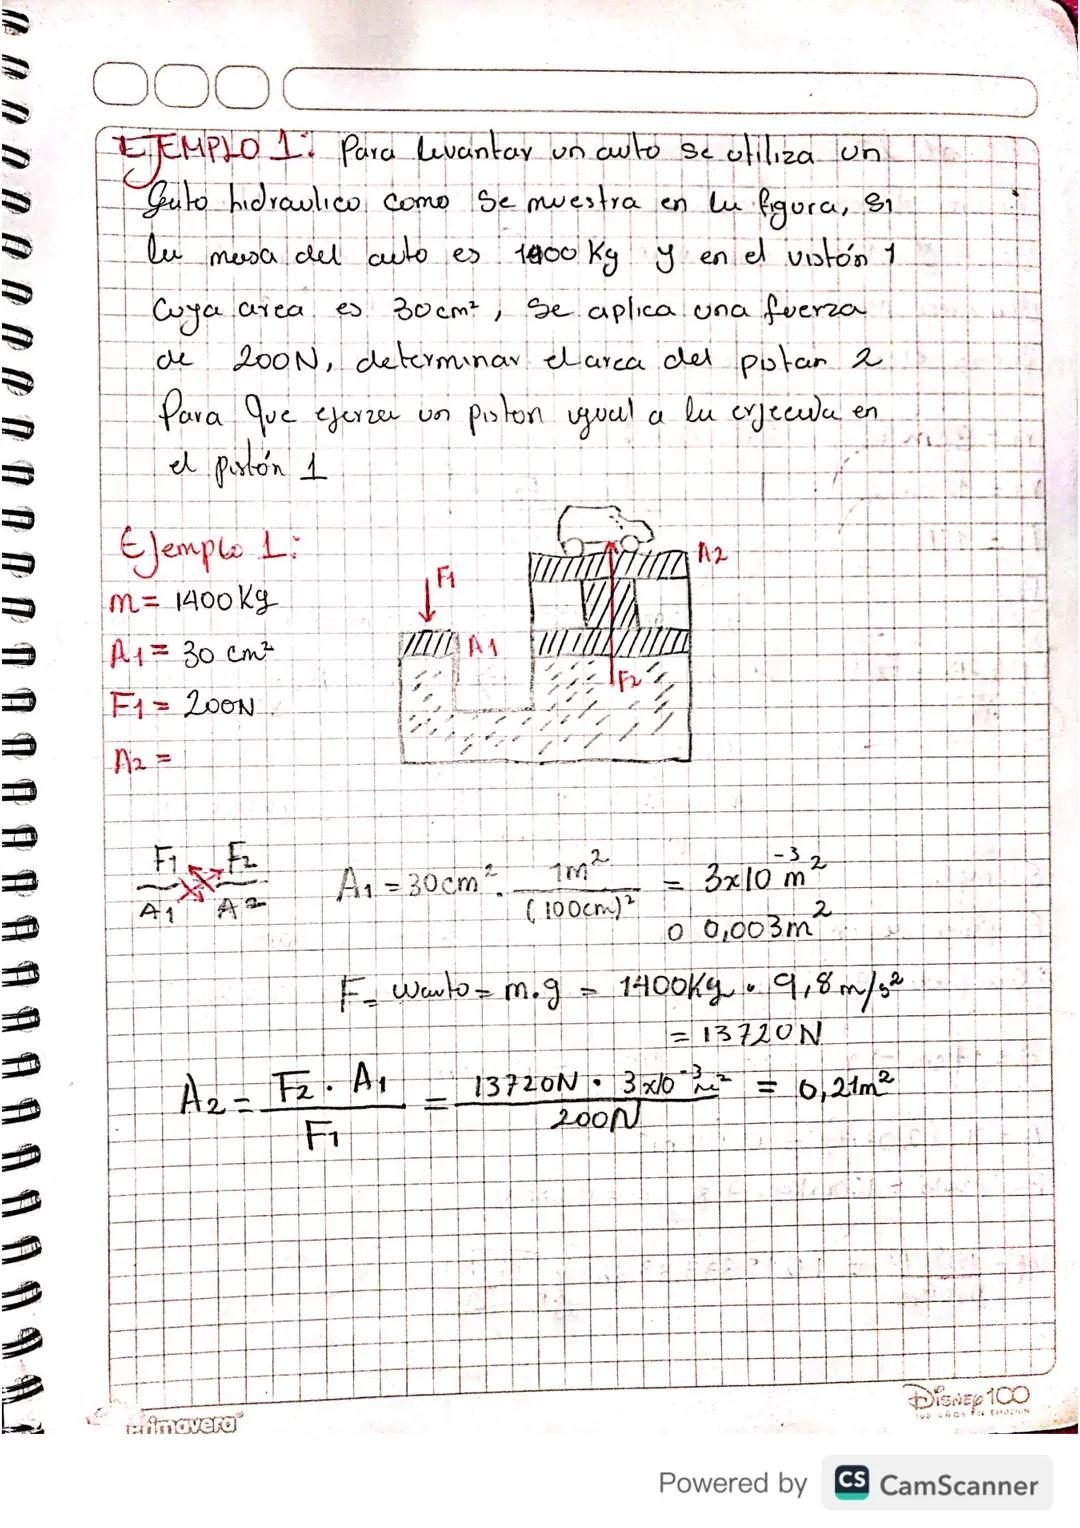 EJEMPLO 1: Para levantar un auto se utiliza un
Gato hidraulico como se muestra en la figura, si
la masa del auto es 1400 Kg y en el vistón 1
Cuya area es 30cm², se aplica una fuerza
de 200N, determinar el area del pistan 2
Para que ejerza un piston igual a la en
el pistón 1
Ejemplo 1:
m= 1400 Kg
A1= 30 cm²
F1= 200N
A2 =
F1
A1
A2
F2
F1 F2
A1 A2
A1 = 30cm² . 1m² / (100cm)² = 3x10⁻³ m²
o 0,003m²
F= Wauto = m.g = 1400Kg . 9,8 m/s²
= 13720N
A2 = F2 . A1 / F1 = 13720N . 3x10⁻³ m² / 200N = 0,21m²
Primavera
DISNEY 100
100 AÑOS DE EMOCIÓN
Powered by CS CamScanner